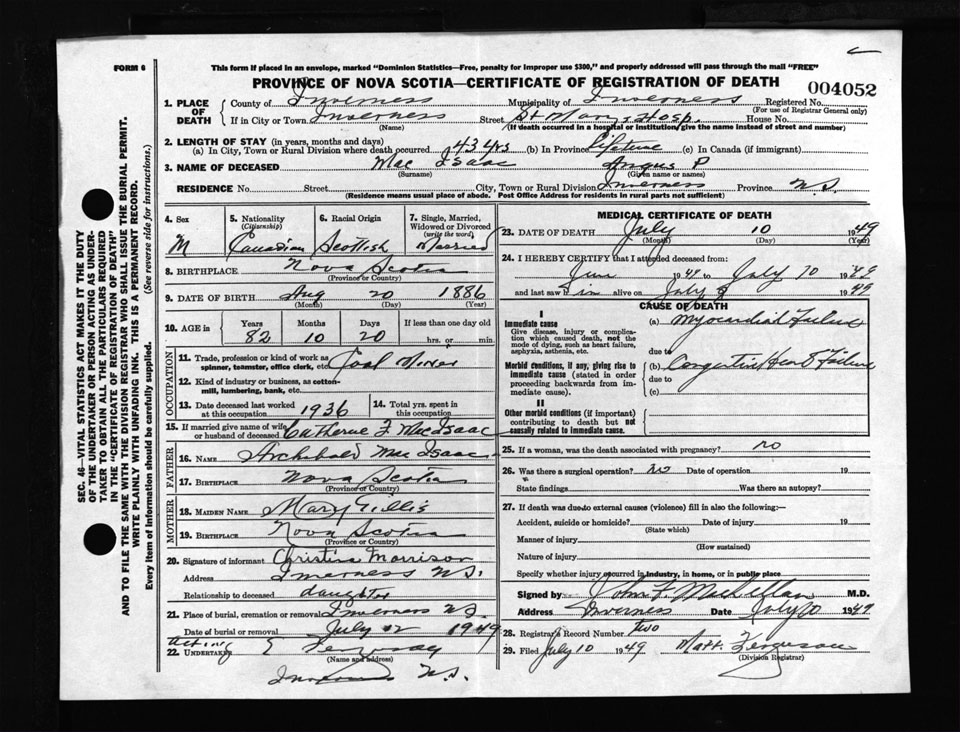 FORM 6
This form if placed in an envelope, marked "Dominion Statistics—Free, penalty for improper use $300," and properly addressed will pass through the mail "FREE"
PROVINCE OF NOVA SCOTIA—CERTIFICATE OF REGISTRATION OF DEATH
004052
SEC. 46—VITAL STATISTICS ACT MAKES IT THE DUTY
OF THE UNDERTAKER OR PERSON ACTING AS UNDER-
TAKER TO OBTAIN ALL THE PARTICULARS REQUIRED
IN THE "CERTIFICATE OF REGISTRATION OF DEATH"
AND TO FILE THE SAME WITH THE DIVISION REGISTRAR WHO SHALL ISSUE THE BURIAL PERMIT.
WRITE PLAINLY WITH UNFADING INK. THIS IS A PERMANENT RECORD.
Every item of Information should be carefully supplied. (See reverse side for instructions.)
1. PLACE OF DEATH
County of Inverness Municipality of Inverness Registered No.
(For use of Registrar General only)
If in City or Town Inverness Street St Mary's Hosp. House No.
(Name) (If death occurred in a hospital or institution, give the name instead of street and number)
2. LENGTH OF STAY (in years, months and days)
(a) In City, Town or Rural Division where death occurred 43 yrs (b) In Province lifetime (c) In Canada (if immigrant)
3. NAME OF DECEASED Mac Isaac Angus P
(Surname) (Given name or names)
RESIDENCE No. Street City, Town or Rural Division Inverness Province N.S.
(Residence means usual place of abode. Post Office Address for residents in rural parts not sufficient)
4. Sex
M
5. Nationality
(Citizenship)
Canadian
6. Racial Origin
Scottish
7. Single, Married, Widowed or Divorced
(write the word)
Married
8. BIRTHPLACE Nova Scotia
(Province or Country)
9. DATE OF BIRTH Aug 20 1886
(Month) (Day) (Year)
10. AGE in
Years Months Days If less than one day old
82 10 20 hrs. or min.
OCCUPATION
11. Trade, profession or kind of work as spinner, teamster, office clerk, etc. Coal Miner
12. Kind of industry or business, as cotton-mill, lumbering, bank, etc.
13. Date deceased last worked at this occupation 1936
14. Total yrs. spent in this occupation
15. If married give name of wife or husband of deceased Catherine F. MacIsaac
FATHER
16. NAME Archibald Mac Isaac
17. BIRTHPLACE Nova Scotia
(Province or Country)
MOTHER
18. MAIDEN NAME Mary Gillis
19. BIRTHPLACE Nova Scotia
(Province or Country)
20. Signature of informant Christina Morrison
Address Inverness N.S.
Relationship to deceased daughter
21. Place of burial, cremation or removal Inverness N.S
Date of burial or removal July 12 1949
acting
22. UNDERTAKER
(Name and address)
Inverness N.S.
MEDICAL CERTIFICATE OF DEATH
23. DATE OF DEATH July 10 1949
(Month) (Day) (Year)
24. I HEREBY CERTIFY that I attended deceased from:
1949 to July 10 1949
and last saw him alive on July 1949
CAUSE OF DEATH
I
Immediate cause
Give disease, injury or complication which caused death, not the mode of dying, such as heart failure, asphyxia, asthenia, etc.
(a) Myocardial Failure
due to
Morbid conditions, if any, giving rise to immediate cause (stated in order proceeding backwards from immediate cause).
(b) Congestive Heart Failure
due to
(c)
II
Other morbid conditions (if important) contributing to death but not causally related to immediate cause.
25. If a woman, was the death associated with pregnancy? no
26. Was there a surgical operation? no Date of operation 19
State findings Was there an autopsy?
27. If death was due to external causes (violence) fill in also the following:—
Accident, suicide or homicide? Date of injury 19
(State which)
Manner of injury
(How sustained)
Nature of injury
Specify whether injury occurred in industry, in home, or in public place
Signed by John F. MacLellan M.D.
Address Inverness Date July 10 1949
28. Registrar's Record Number two
29. Filed July 10 1949 Matt. Ferguson
(Division Registrar)